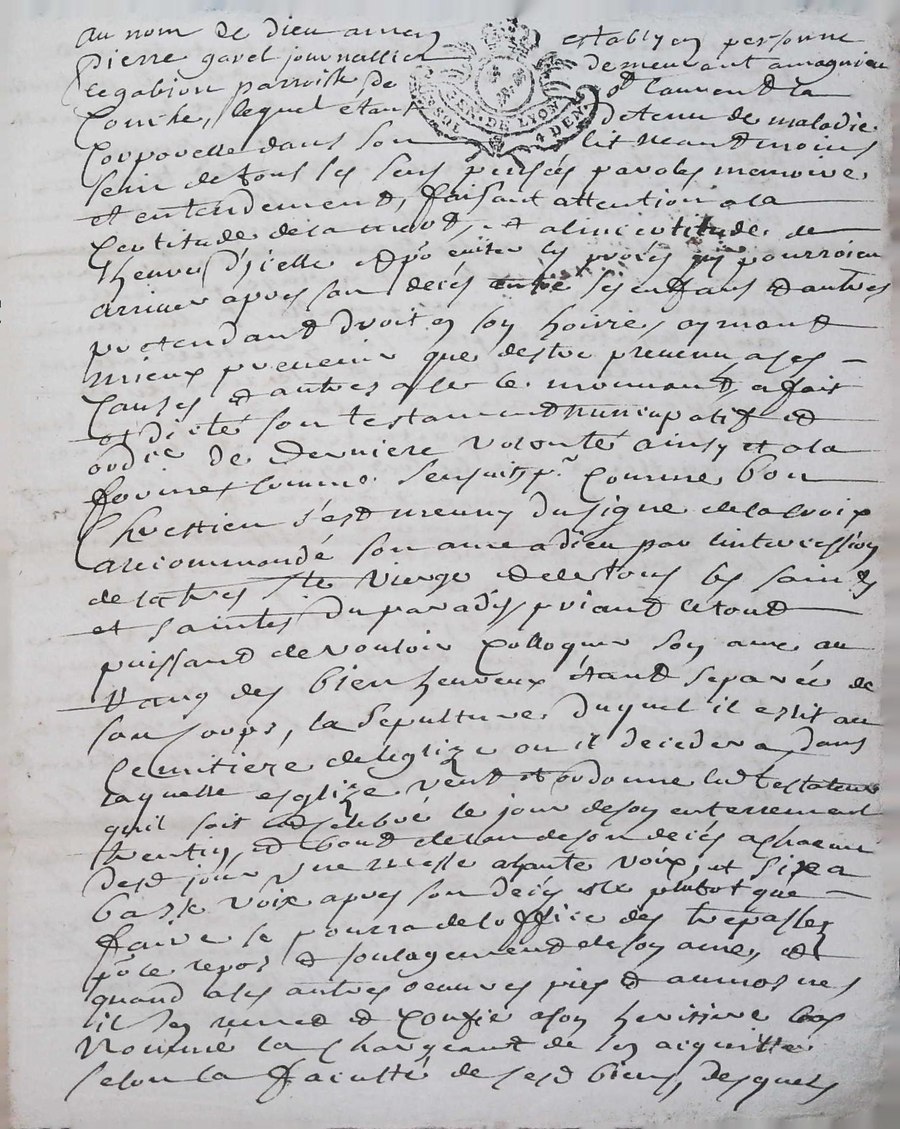 au nom de dieu amen establyen personne
Pierre garel journallier demeurant amagnieu
legabion parroisse de st laurend la
Conche, lequel etant detenu de maladie
GEN. DE LYON
SOL 4 DEN.
Corporelle dans son lit neantmoins
sein de tous ses sens pensés paroles memoire
et entendement, faisant attention ala
Certitude delamort, et alincertitude de
lheure d'icelle et po eviter les procés qui pourroien
arriver apres son decés entre ses enffans et autres
pretendant droit en son hoirie, aymant
mieux prevenir que destre prevenu ases
Causes et autres a le mouvant, a fait
et dicté son testament nuncupatif et
ordre de derniere volonté ainsy et ala
forme comme sensuit pr Comme bon
Chrestien s'est muny du signe delacroix
arecommandé son ame adieu par lintercession
delatres ste vierge et detous les saints
et saintes du paradis, priant letout
puissant devouloir Colloquer son ame au
Rang des bien heureux etant separée de
son corps, la sepulture duquel il eslit au
Cemitiere deleglize ou il decedera dans
laquelle esglize veut et ordonne led testateur
quil soit celebré le jour deson enterrement
trentin, et bout delan deson decés achacun
desd jours une messe ahaute voix, et six a
basse voix apres son decés et plutot que
faire se pourra deloffice des trepassés
po le repos et soulagement deson ame, et
quand ases autres oeuvres pies et aumosnes
il sen remet et Confie ason heritiere bas
Nommé la Chargeant de sen acquitter
selon la faculté de sesd biens, desquels